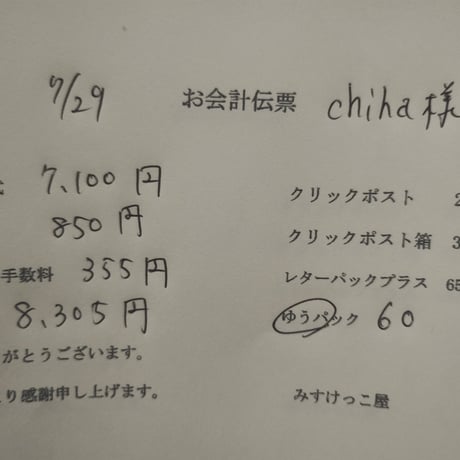 7/29 お会計伝票 chiha様
7,100円
850円
手数料 355円
8,305円
がとうございます。
り感謝申し上げます。
クリックポスト 2
クリックポスト箱 3
レターパックプラス 65
ゆうパック 60
みすけっこ屋